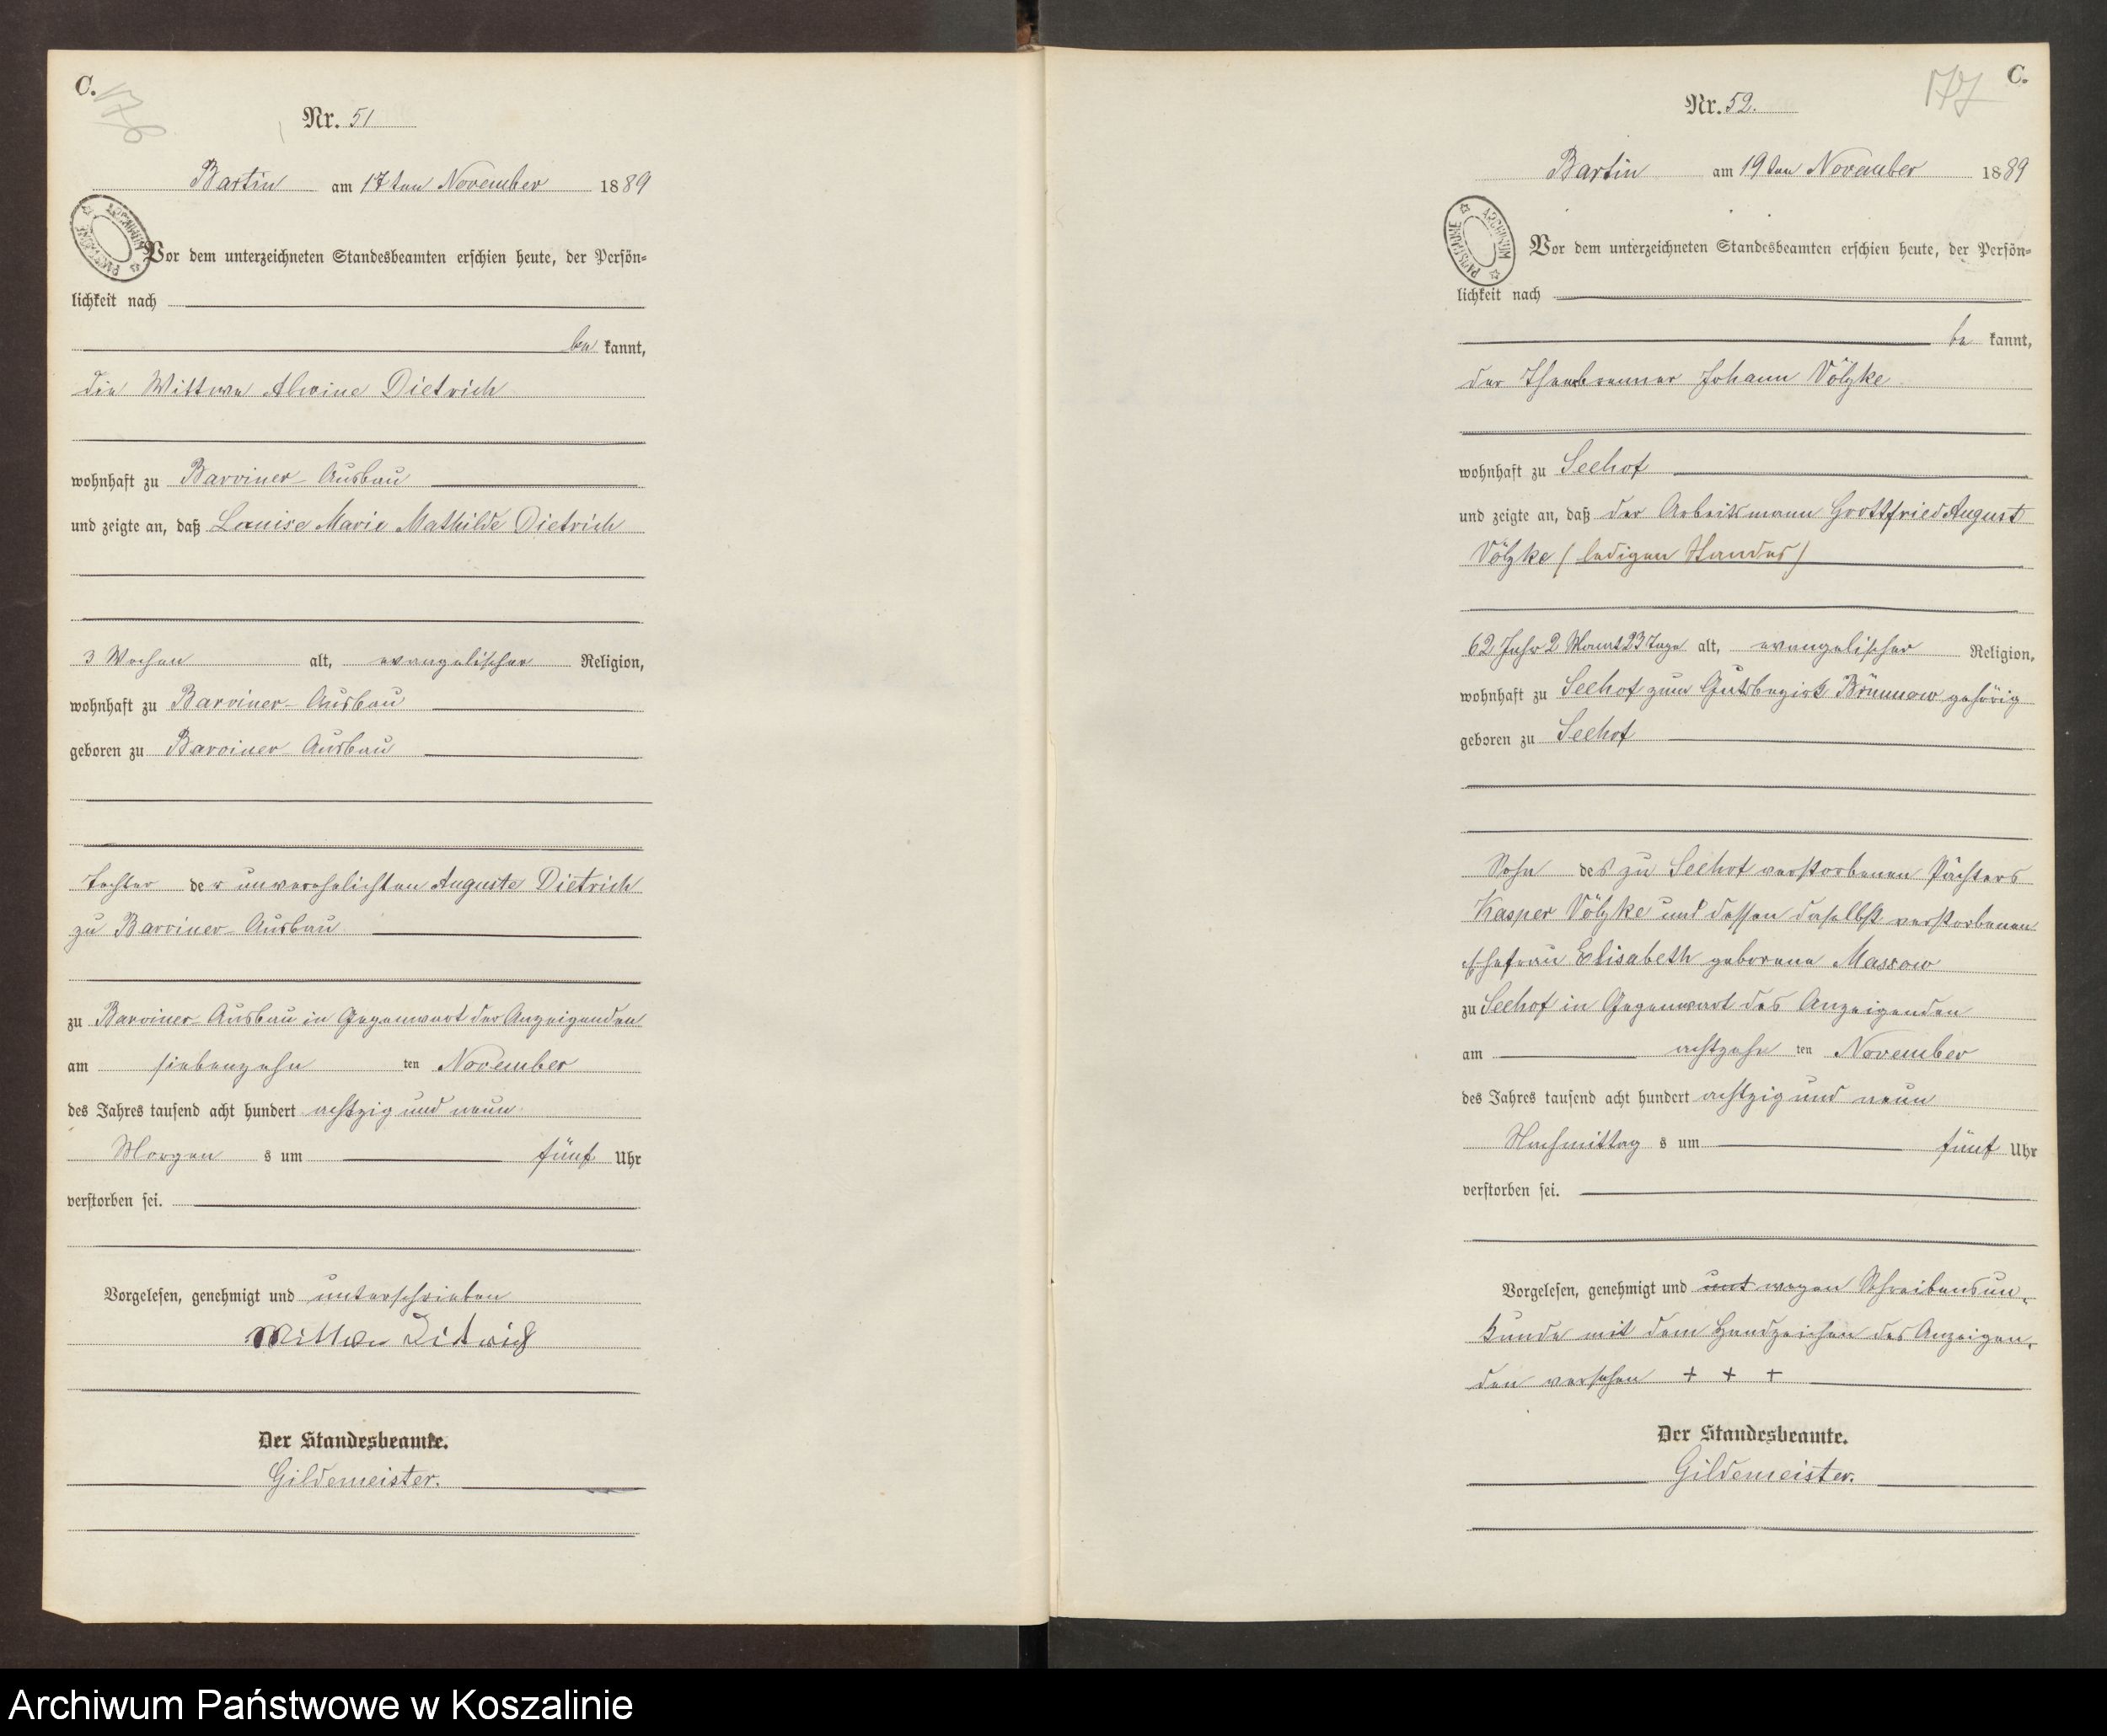 C.
176
Nr. 51
Bartin am 17ten November 1889
Vor dem unterzeichneten Standesbeamten erschien heute, der Persön=
lichkeit nach
be kannt,
die Wittwe Alwine Dietrich
wohnhaft zu Barviner-Ausbau
und zeigte an, daß Louise Marie Mathilde Dietrich
3 Wochen alt, evangelischer Religion,
wohnhaft zu Barviner-Ausbau
geboren zu Barviner Ausbau
Tochter der unverehelichten Auguste Dietrich
zu Barviner-Ausbau
zu Barviner-Ausbau in Gegenwart der Anzeigenden
am siebenzehn ten November
des Jahres tausend acht hundert achtzig und neun
Morgen s um fünf Uhr
verstorben sei.
Vorgelesen, genehmigt und unterschrieben
Der Standesbeamte.
Gildemeister.
C.
177
Nr. 52.
Bartin am 19ten November 1889
Vor dem unterzeichneten Standesbeamten erschien heute, der Persön=
lichkeit nach
be kannt,
der Theerbrenner Johann Völzke
wohnhaft zu Seehof
und zeigte an, daß der Arbeitsmann Gottfried August
Völzke (ledigen Standes)
62 Jahr 2 Monat 23 Tage alt, evangelischer Religion,
wohnhaft zu Seehof zum Gutsbezirk Brünnow gehörig
geboren zu Seehof
Sohn des zu Seehof verstorbenen Pächters
Kasper Völzke und dessen daselbst verstorbenen
Ehefrau Elisabeth geborene Massow
zu Seehof in Gegenwart des Anzeigenden
am achtzehn ten November
des Jahres tausend acht hundert achtzig und neun
Nachmittag s um fünf Uhr
verstorben sei.
Vorgelesen, genehmigt und unt wegen Schreibensun=
kunde mit dem Handzeichen des Anzeigen=
den versehen + + +
Der Standesbeamte.
Gildemeister.
Archiwum Państwowe w Koszalinie